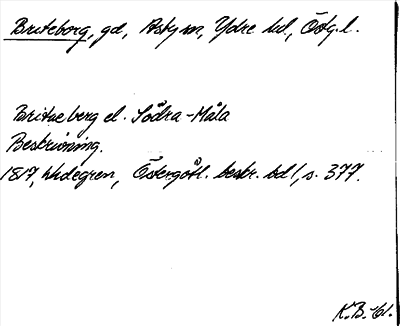 Briteborg, gd, Asby sn, Ydre hd, Östg. l.
Britzeberg el. Södra-Måla
Beskrivning.
1817, Widegren, Östergötl. beskr. bd 1, s. 377.
K.B. Cl.